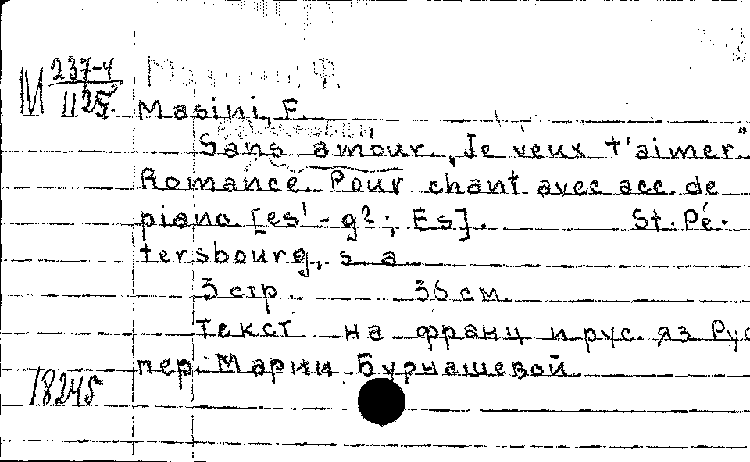 М 237-4
1125
Masini, F.
Sans amour. „Je veux t'aimer"
Romance. Pour chant avec acc. de
piano. [es¹ - g²; Es]. St. Pé-
tersbourg, s. a.
3 стр. 36 см.
Текст на франц. и рус. яз. Рус
пер. Марии Бурнашевой.
18245